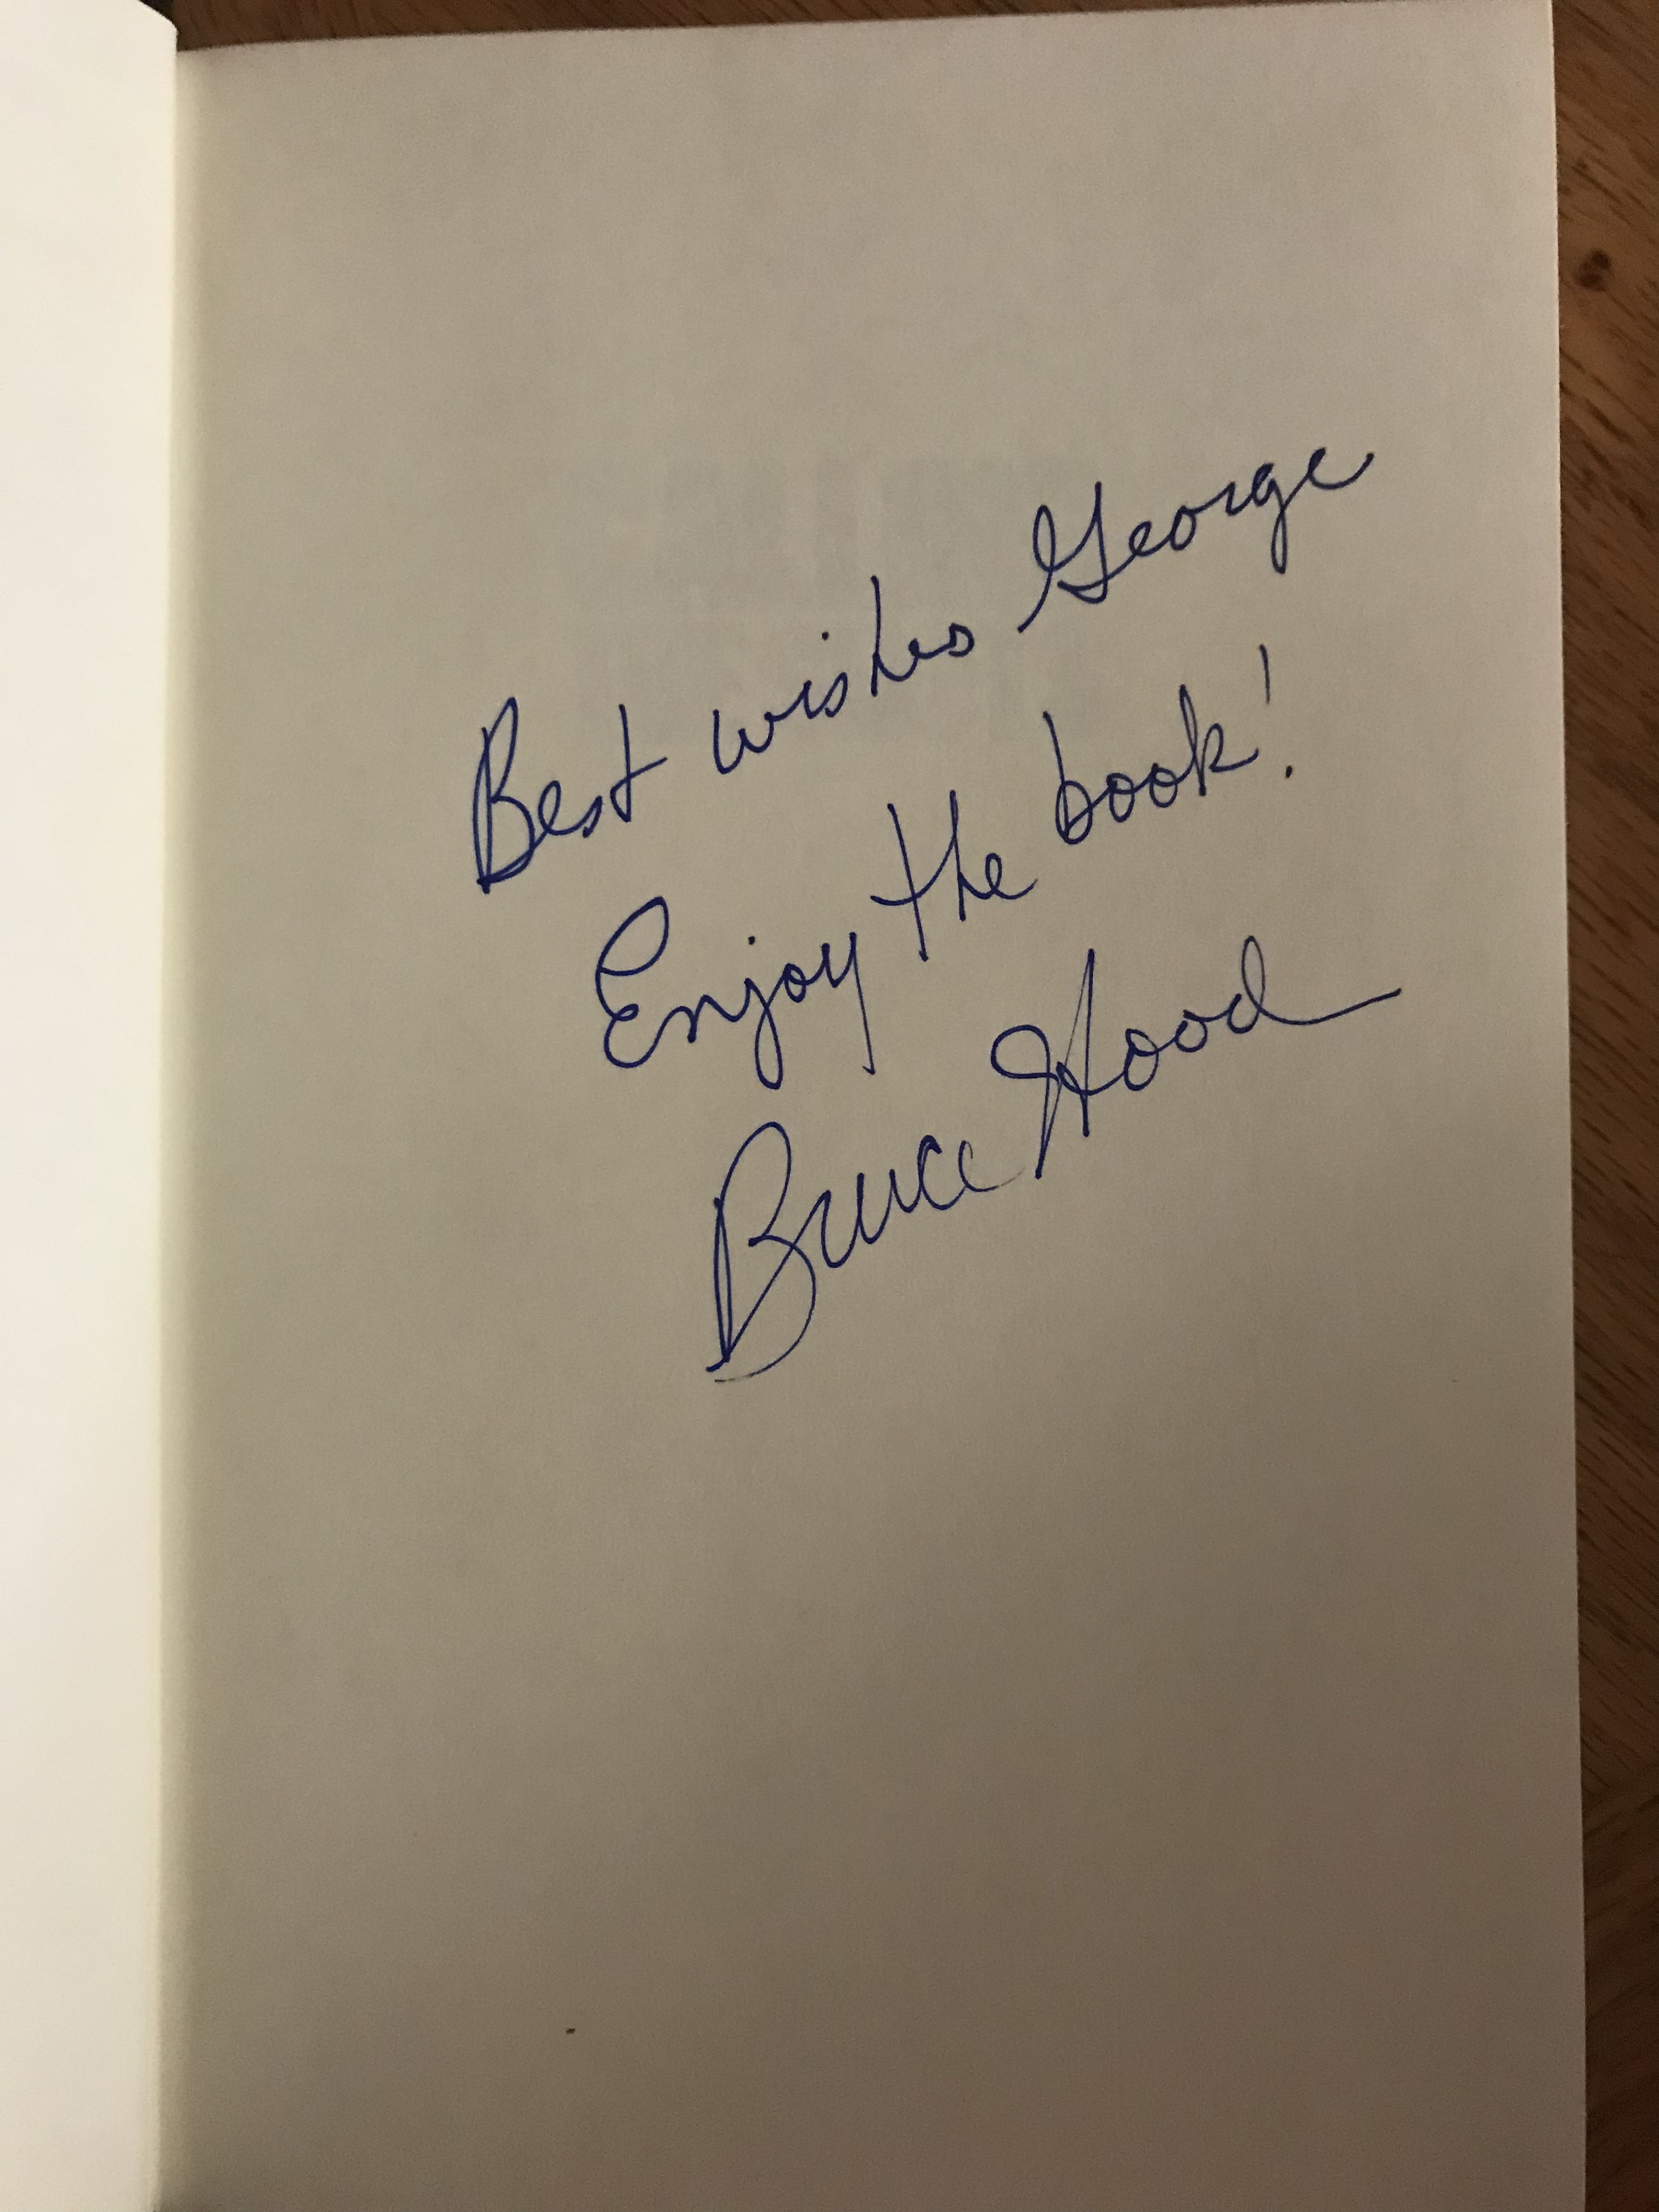 Best wishes George
Enjoy the book!
Bruce Hood